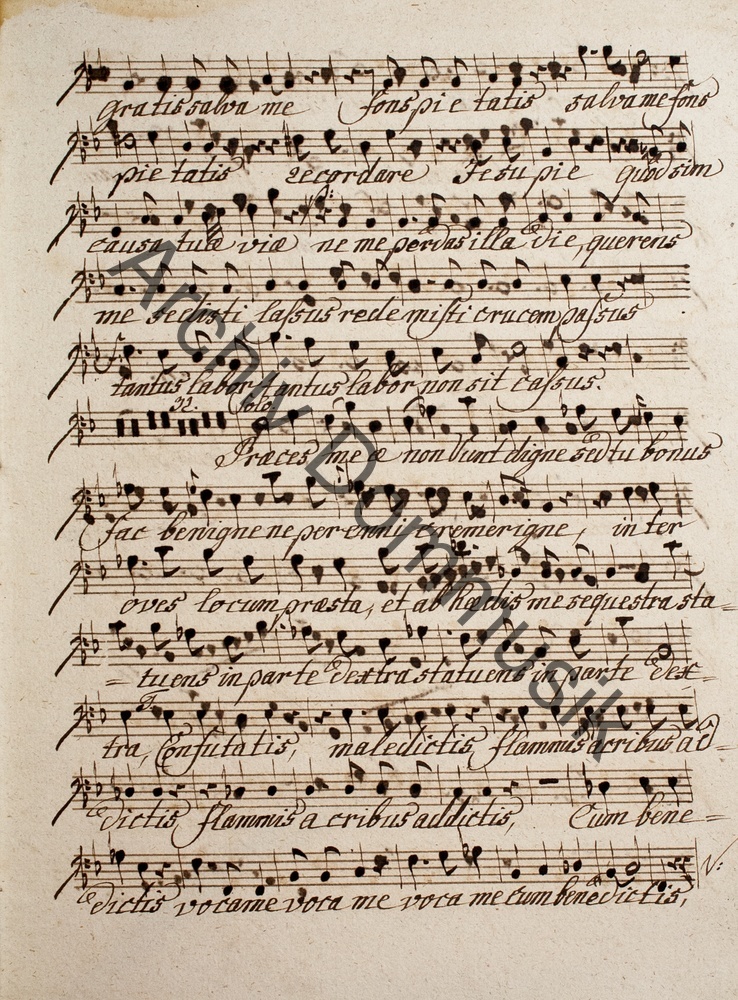 gratis salva me fons pie tatis salva me fons
pie tatis recordare Jesu pie quod sim
causa tuæ viæ ne me perdas illa die, querens
me sedisti lassus rede misti crucem passus
tantus labor tantus labor non sit cassus.
32. Solo
Præces meæ non sunt digne sed tu bonus
fac benigne ne perenni cremer igne, inter
oves locum præsta, et ab hædis me sequestra sta=
=tuens in parte dextra statuens in parte dex=
T.
tra, Confutatis, maledictis flammis acribus ad=
dictis, flammis acribus addictis, Cum bene=
dictis voca me voca me voca me cum benedictis,
V:
Archiv Dommusik